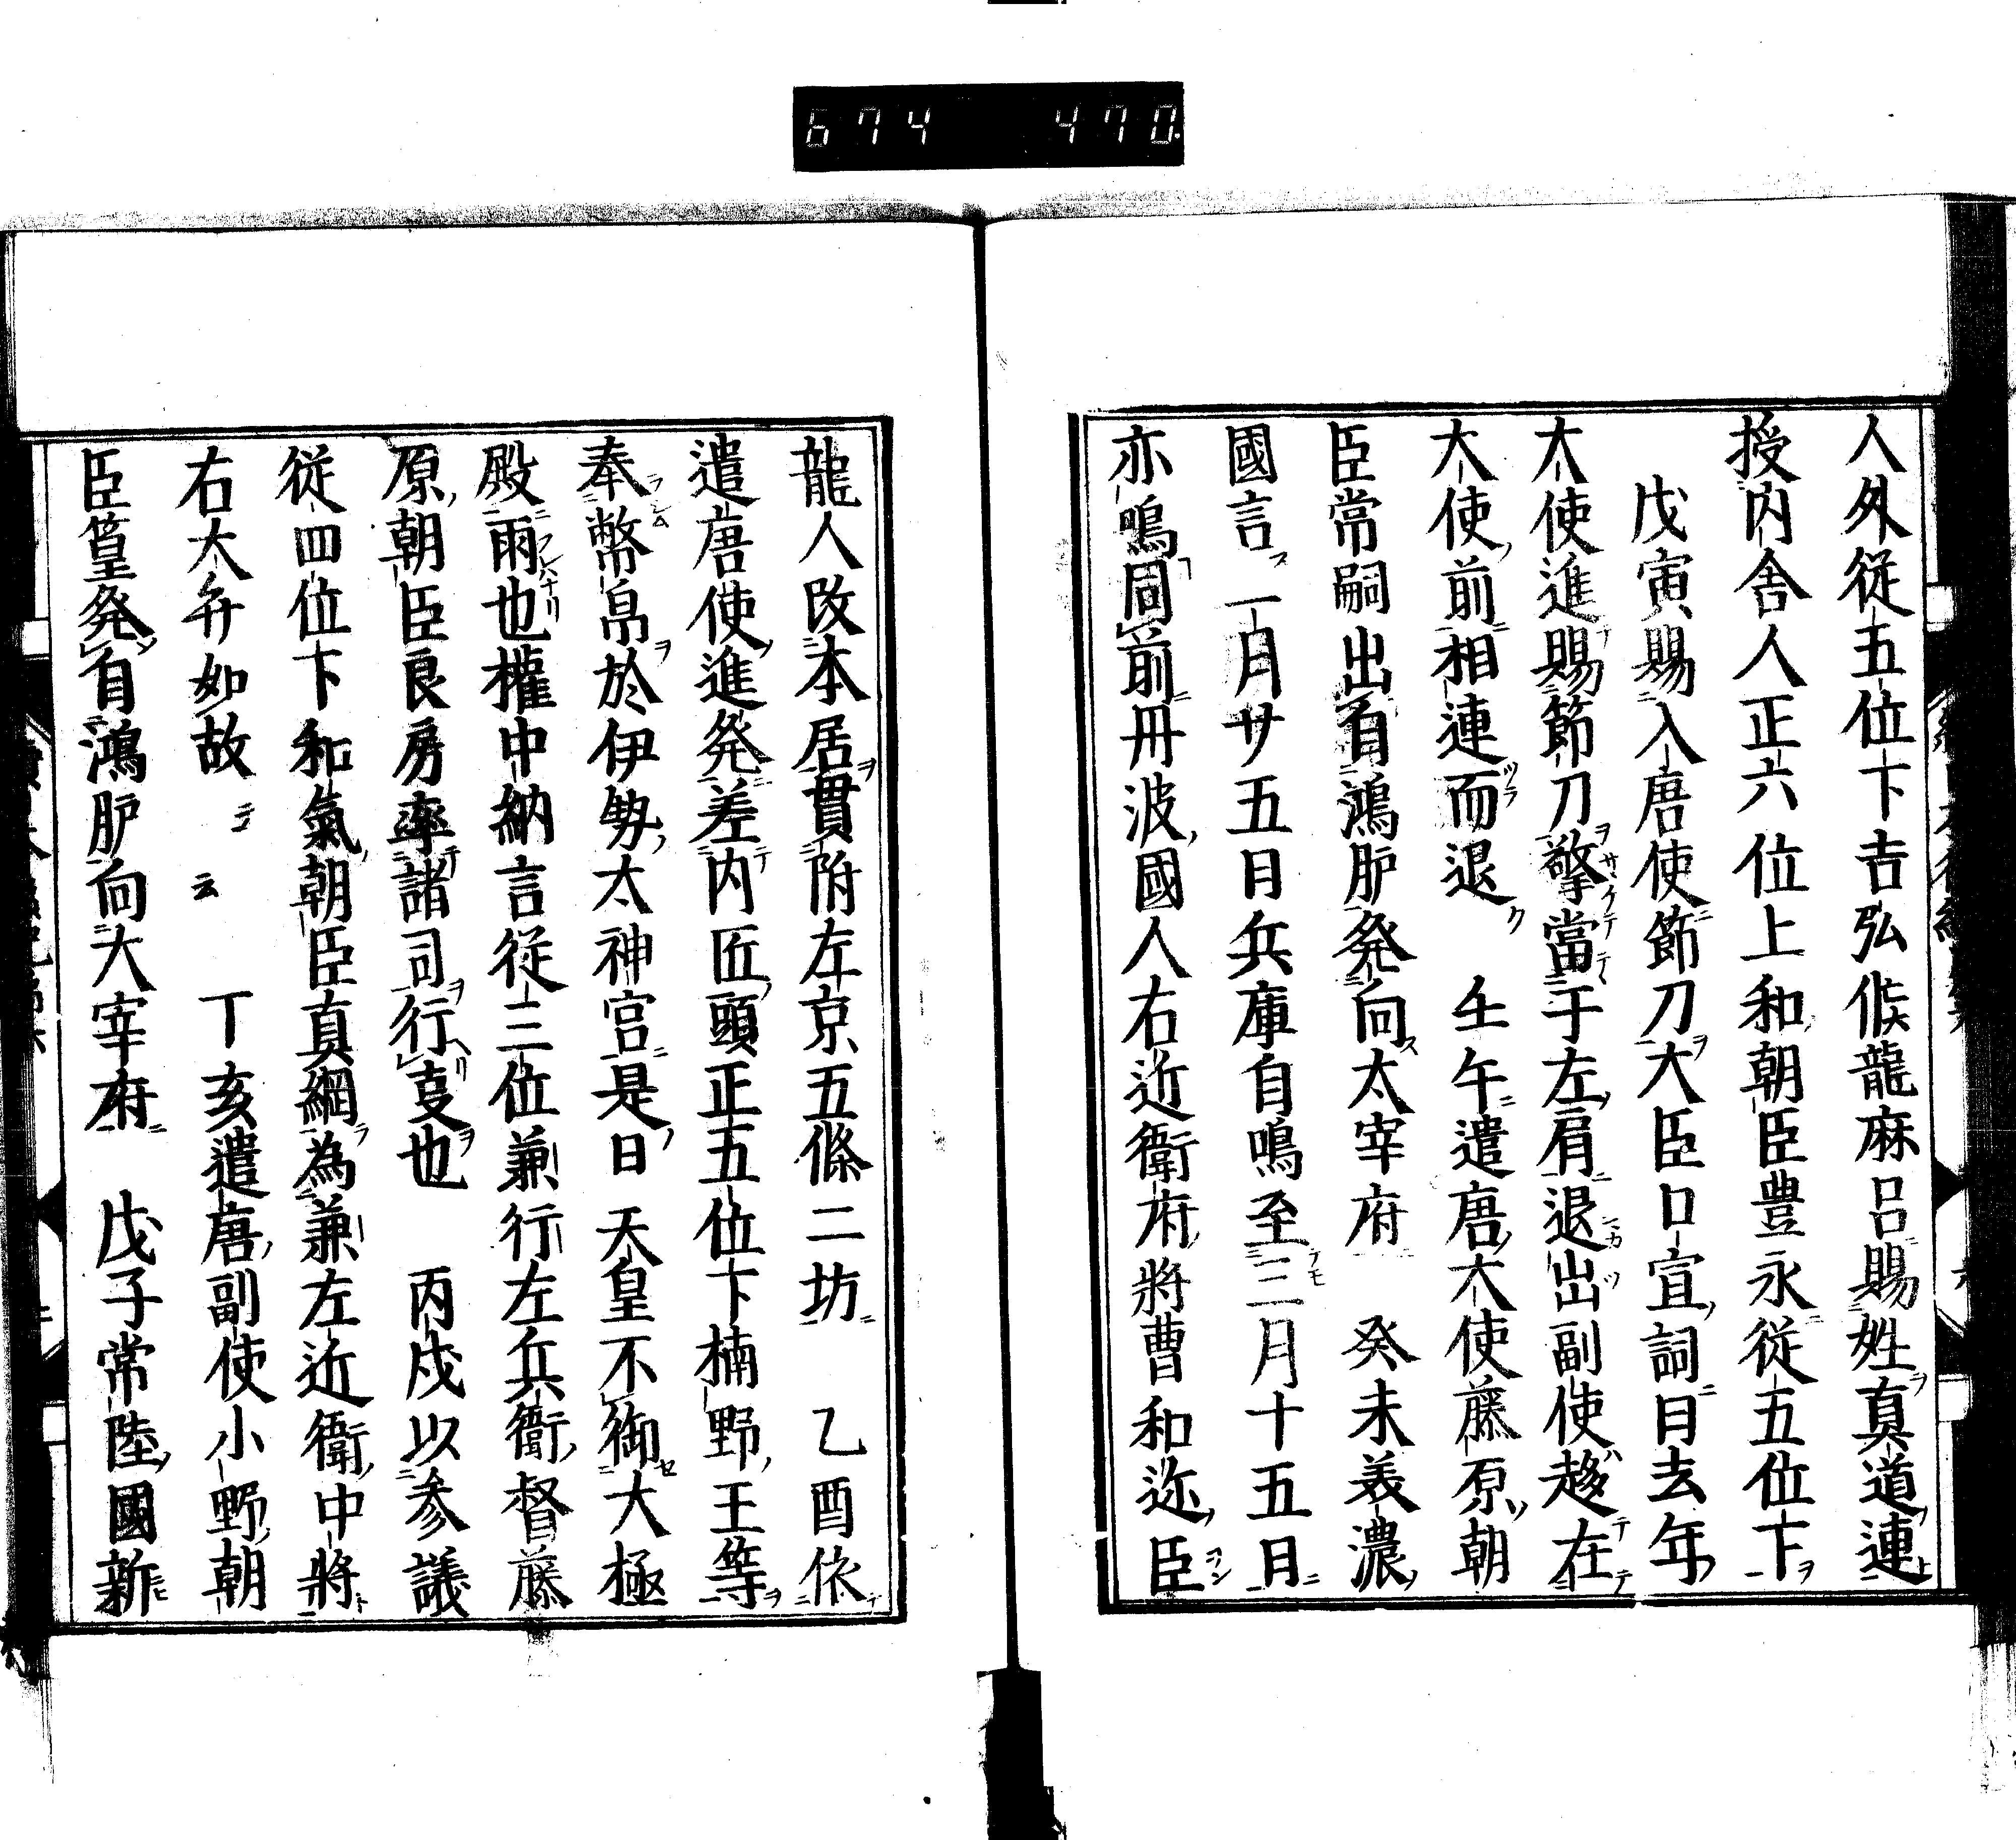 674 470
人外従五位下吉弘侯龍麻呂賜姓真道連
授内舎人正六位上和朝臣豊永従五位下
戊寅賜入唐使節刀大臣口宣詞曰去年
大使進賜節刀擎當于左肩退出副使趍在
大使前相連而退 壬午遣唐大使藤原朝
臣常嗣出自鴻胪発向太宰府 癸未美濃
國言一月廿五日兵庫自鳴至三月十五日
亦鳴圊前丹波國人右近衛府將曹和迩臣
龍人改本居貫附左京五條二坊 乙酉依
遣唐使進発差内匠頭正五位下楠野王等
奉幣帛於伊勢太神宮是日天皇不御大極
殿雨也權中納言従三位兼行左兵衛督藤
原朝臣良房率諸司行㕝也 丙戌以参議
従四位下和氣朝臣真綱為兼左近衛中將
右大弁如故云云 丁亥遣唐副使小野朝
臣篁発自鴻胪向大宰府 戊子常陸國新